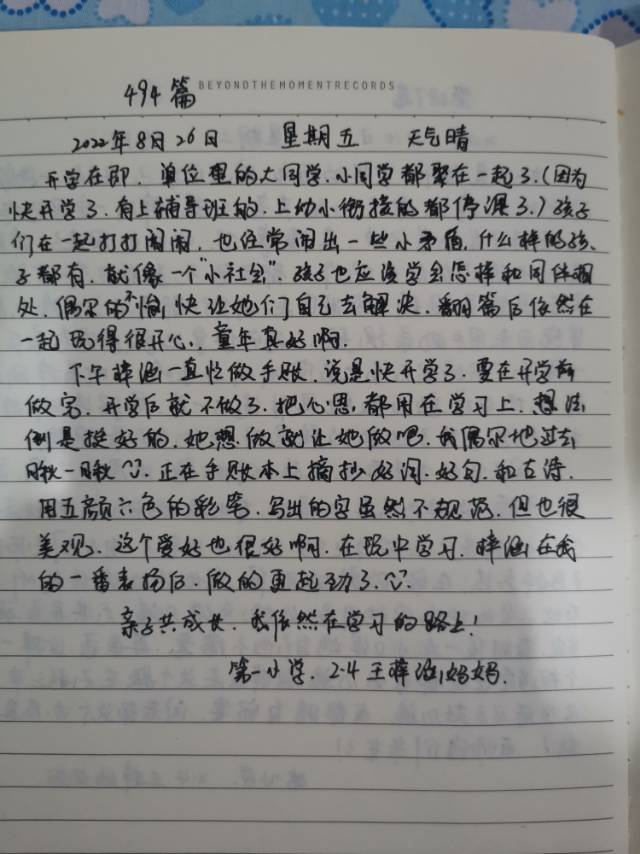 494篇 BEYONDTHEMOMENTRECORDS
2022年8月26日 星期五 天气晴
开学在即，单位里的大同学、小同学都聚在一起了。（因为
快开学了，有上辅导班的，上幼小衔接的都停课了。）孩子
们在一起打打闹闹，也经常闹出一些小矛盾，什么样的孩
子都有，就像一个“小社会”。孩子也应该学会怎样和同伴相
处，偶尔的不愉快让她们自己去解决，翻篇后依然在
一起玩得很开心，童年真好啊。
下午梓涵一直忙做手账，说是快开学了，要在开学前
做完，开学后就不做了，把心思，都用在学习上，想法
倒是挺好的，她想做就让她做吧，我偶尔地过去
瞅一瞅，正在手账本上摘抄好词、好句、和古诗，
用五颜六色的彩笔，写出的字虽然不规范，但也很
美观，这个爱好也很好啊，在玩中学习，梓涵在我
的一番表扬后，做的更起劲了。
亲子共成长，我依然在学习的路上！
第一小学，2.4 王梓涵妈妈。